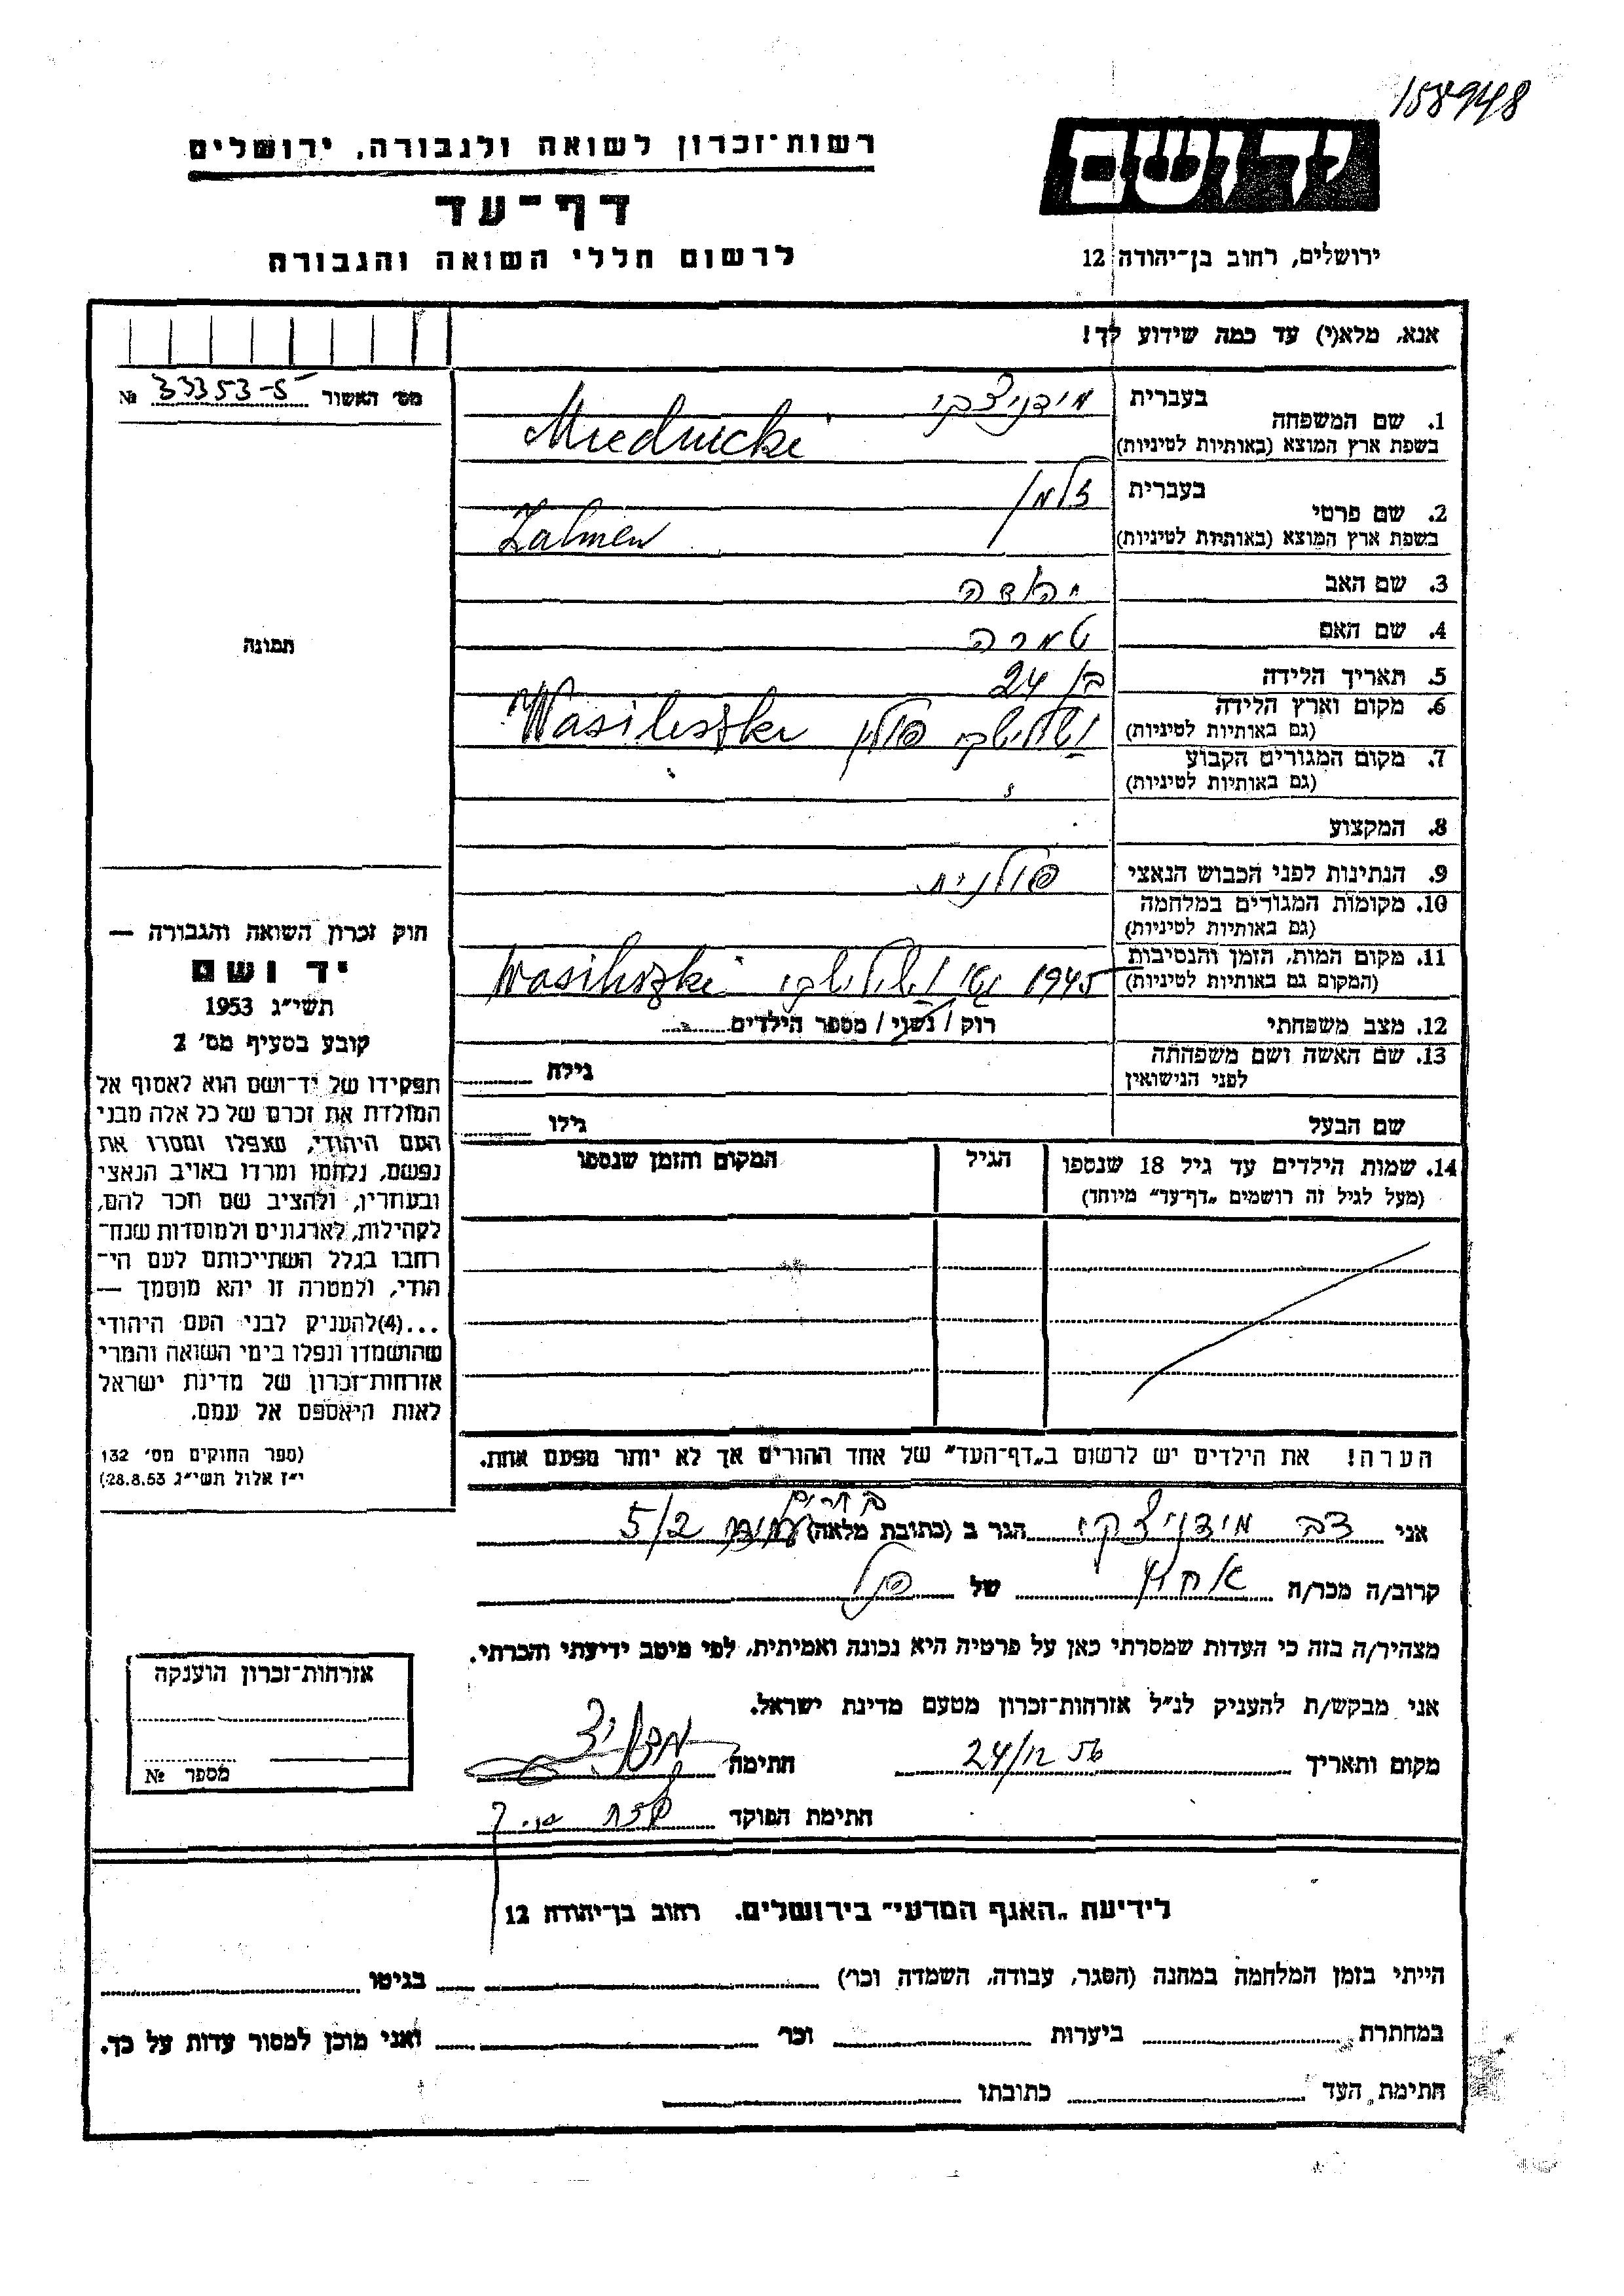 158948
רשות־זכרון לשואה ולגבורה, ירושלים
יד ושם
דף־עד
לרשום חללי השואה והגבורה
ירושלים, רחוב בן־יהודה 12
אנא, מלא(י) עד כמה שידוע לך!
מס׳ האשור 33353-5 №
1. שם המשפחה
בעברית מידניצקי
בשפת ארץ המוצא (באותיות לטיניות) Miednicki
2. שם פרטי
בעברית זלמן
בשפת ארץ המוצא (באותיות לטיניות) Zalmen
3. שם האב יהודה
4. שם האם טמרה
5. תאריך הלידה בן 24
6. מקום וארץ הלידה
(גם באותיות לטיניות) ושילישקי פולין Wasiliszki
7. מקום המגורים הקבוע
(גם באותיות לטיניות)
8. המקצוע
9. הנתינות לפני הכבוש הנאצי פולנית
10. מקומות המגורים במלחמה
(גם באותיות לטיניות)
11. מקום המות, הזמן והנסיבות
(המקום גם באותיות לטיניות) 1945 ושילישקי Wasiliszki
12. מצב משפחתי רוק / נשוי / מספר הילדים
13. שם האשה ושם משפחתה
לפני הנישואין
גילה
שם הבעל
גילו
14. שמות הילדים עד גיל 18 שנספו
(מעל לגיל זה רושמים „דף־עד״ מיוחד)
הגיל
המקום והזמן שנספו
הערה! את הילדים יש לרשום ב„דף־העד״ של אחד ההורים אך לא יותר מפעם אחת.
תמונה
חוק זכרון השואה והגבורה —
יד ושם
תשי״ג 1953
קובע בסעיף מס׳ 2
תפקידו של יד־ושם הוא לאסוף אל
המולדת את זכרם של כל אלה מבני
העם היהודי, שנפלו ומסרו את
נפשם, נלחמו ומרדו באויב הנאצי
ובעוזריו, ולהציב שם וזכר להם,
לקהילות, לארגונים ולמוסדות שנח־
רבו בגלל השתייכותם לעם הי־
הודי, ולמטרה זו יהא מוסמך —
...(4)להעניק לבני העם היהודי
שהושמדו ונפלו בימי השואה והמרי
אזרחות־זכרון של מדינת ישראל
לאות היאספם אל עמם.
(ספר החוקים מס׳ 132
י״ז אלול תשי״ג 28.8.53)
אני דב מידניצקי הגר ב (כתובת מלאה) 5/2
קרוב/ה מכר/ה אחיו של הנ״ל
מצהיר/ה בזה כי העדות שמסרתי כאן על פרטיה היא נכונה ואמיתית, לפי מיטב ידיעתי והכרתי.
אני מבקש/ת להעניק לנ״ל אזרחות־זכרון מטעם מדינת ישראל.
מקום ותאריך 24/12 56 חתימה
חתימת הפוקד
אזרחות־זכרון הוענקה
מספר №
לידיעת „האגף המדעי״ בירושלים. רחוב בן־יהודה 12
הייתי בזמן המלחמה במחנה (הסגר, עבודה, השמדה וכו׳) בגיטו
במחתרת ביערות וכו׳ ואני מוכן למסור עדות על כך.
חתימת העד כתובתו